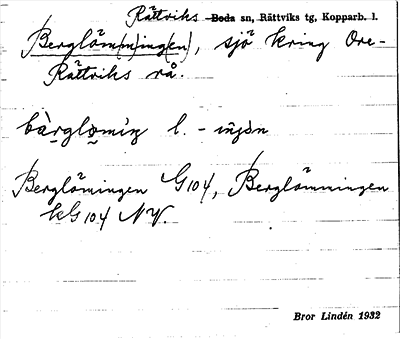 Rättviks Boda sn, Rättviks tg, Kopparb. l.
Berglöm(m)ing(en), sjö kring Ore-
Rättviks rå.
bàrglomiŋ l. - iŋən
Berglömingen G104, Berglömmingen
kG104 NV.
Bror Lindén 1932